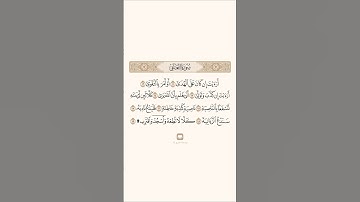 سورة العلق
أرءيت إن كان على الهدى ۝ أو أمر بالتقوى ۝
أرءيت إن كذب وتولى ۝ ألم يعلم بأن الله يرى ۝ كلا لئن لم ينته
لنسفعا بالناصية ۝ ناصية كاذبة خاطئة ۝ فليدع ناديه ۝
سندع الزبانية ۝ كلا لا تطعه واسجد واقترب ۩ ۝